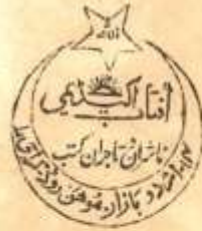 آفتاب اکیڈیمی
ناشران و تاجران کتب
بازار، موہن روڈ، کراچی